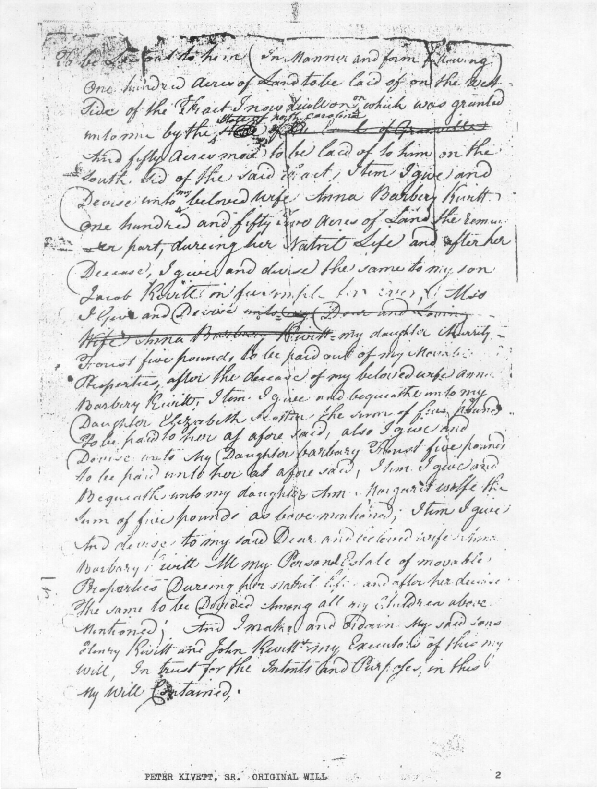 To be Laid out to him (In Manner and form following)
One hundred Acres of Land to be laid of on the West
Side of the Tract I now dwell on on which was granted
unto me by the State of north carolina
And fifty Acres more to be laid of to him on the
South Sid of the said Tract, Item I give and
Devise unto my beloved wife Anna Barbery Kivett
One hundred and fifty two Acres of Land the
part, dureing her Natrel Life and after her
Decease, I give and devise the same to my son
Jacob Kivitt in for ever, Also
I Give and Devise unto my Dear and Loving
Wife Anna Barbary Kivitt my daughter
Foust five pounds to be paid out of my Movable
Properties, after the decease of my beloved wife Anna
Barbery Kivitt, Item I give and bequeathe unto my
Daughter Elizabeth the Sum of five pounds
To be paid to her as afore said, also I give and
Devise unto My Daughter barbary Foust five pounds
to be paid unto her as afore said, Item I give and
Bequeath unto my daughter Ann Margaret wolfe the
Sum of five pounds as above mentioned; Item I give
And devise to my said Dear and beloved wife Anna
Barbary Kivitt All my Personal Estate of movable
Properties Dureing her natrel Life and after her decease
The same to be Devided Among all my Children above
Mentioned; And I make and Ordain My said sons
Henry Kivitt and John Kivitt my Executors of this my
Will, In trust for the Intents and Purposes, in this
My Will Contained;
PETER KIVETT, SR. ORIGINAL WILL 2